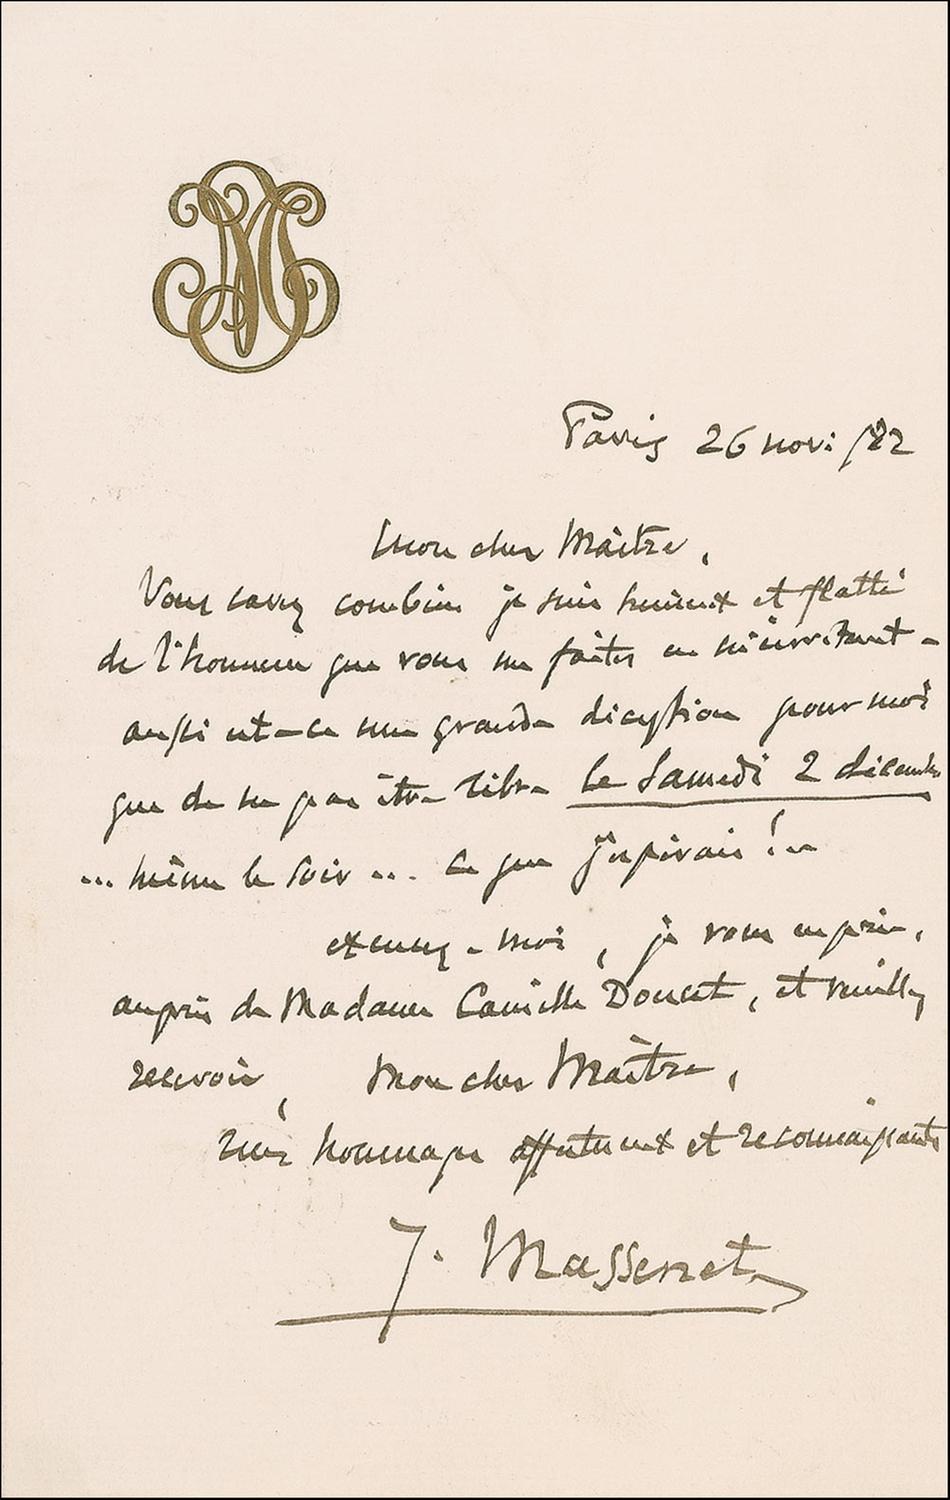 Paris 26 nov: /82
Mon cher Maître,
Vous savez combien je suis heureux et flatté
de l'honneur que vous me faites en m'invitant -
aussi est-ce une grande déception pour moi
que de ne pas être libre le Samedi 2 décembre
... même le soir ... ce que j'espérais !..
excusez-moi, je vous en prie,
auprès de Madame Camille Doucet, et veuillez
recevoir, Mon cher Maître,
mes hommages affectueux et reconnaissants
J. Massenet